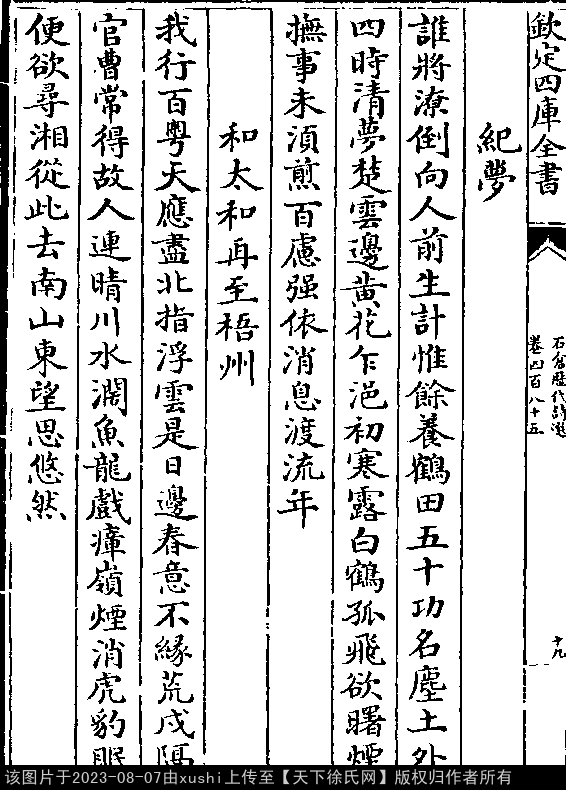 欽定四庫全書
石倉歷代詩選
卷四百八十五
十九
紀夢
誰將潦倒向人前生計惟餘養鶴田五十功名塵土外
四時清夢楚雲邊黃花乍浥初寒露白鶴孤飛欲曙煙
撫事未須煎百慮强依消息渡流年
和太和再至梧州
我行百粤天應盡北指浮雲是日邊春意不緣荒戍隔
官曹常得故人連晴川水濶魚龍戲瘴嶺煙消虎豹眠
便欲尋湘從此去南山東望思悠然
该图片于2023-08-07由xushi上传至【天下徐氏网】版权归作者所有